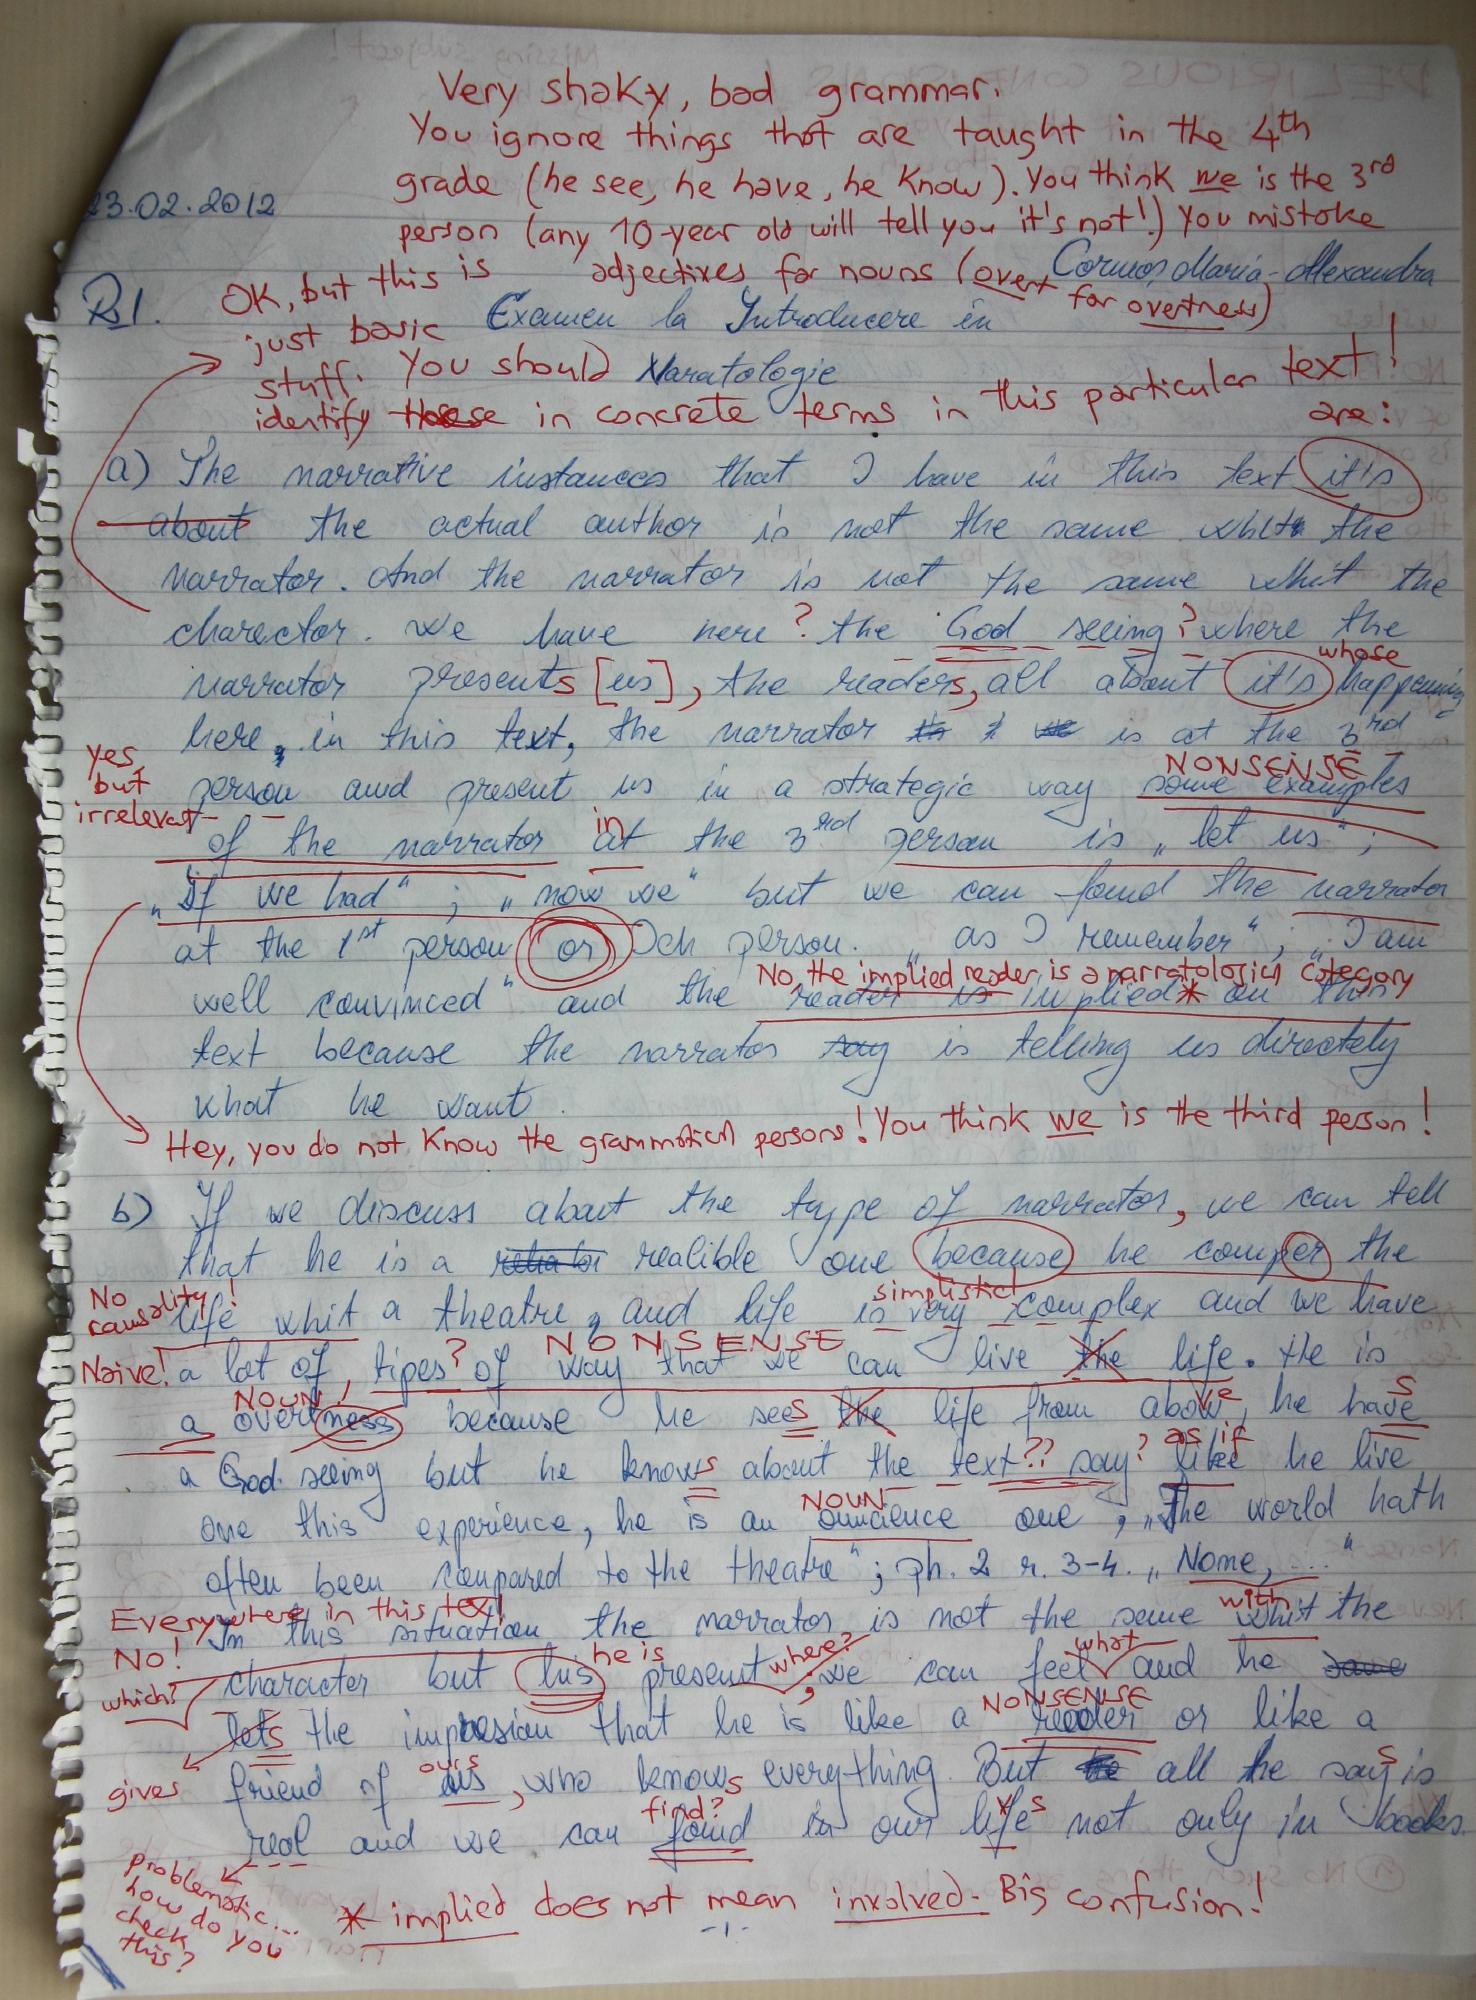 Very shaky, bad grammar.
You ignore things that are taught in the 4th
grade (he see, he have, he know). You think we is the 3rd
23.02.2012
person (any 10-year old will tell you it's not!) You mistake
adjectives for nouns (overt for overtness)
Maria-Alexandra
R1.
OK, but this is
just basic
stuff. You should
identify these in concrete terms in this particular text!
Examen la Introducere in
Naratologie
are:
a) The narrative instances that I have in this text it's
about the actual author is not the same whit the
narrator. And the narrator is not the same whit the
charector. We have here ? the God seeing ? where the
whose
narrator presents [us], the readers, all about it's happening
here, in this text, the narrator is at the 3rd
yes,
but
irrelevant
NONSENSE
person and present us in a strategic way some examples
in
of the narrator at the 3rd person is „let us“;
„If we had“; „now we“ but we can found the narrator
at the 1st person or person. „as I remember“; „I am
No, the implied reader is a narratological category
well convinced“ and the reader is implied* on this
text because the narrator say is telling us directely
what he want.
Hey, you do not know the grammatical persons! You think we is the third person!
b) If we discuss about the type of narrator, we can tell
that he is a realible one because he comper the
No
causality!
simplistic!
life whit a theatre, and life is very complex and we have
Naive!
NONSENSE
a lot of, tipes? of way that we can live the life. He is
NOUN!
a overtness because he sees the life from above, he haves
as if
a God seeing but he knows about the text?? say? like he live
NOUN
one this experience, he is an omnicience one, „The world hath
often been compared to the theatre“; ph. 2 r. 3-4. „None, ...“
Everywhere in this text
with
In this situation the narrator is not the same whit the
No!
he is
where?
what
character but his present; we can feel and he
which?
NONSENSE
lets the impresion that he is like a reader or like a
gives
ours
friend of us, who knows everything. But all he says is
find?
real and we can found in our lifes not only in books.
problematic...
how do you
check
this?
* implied does not mean involved - Big confusion!
-1-